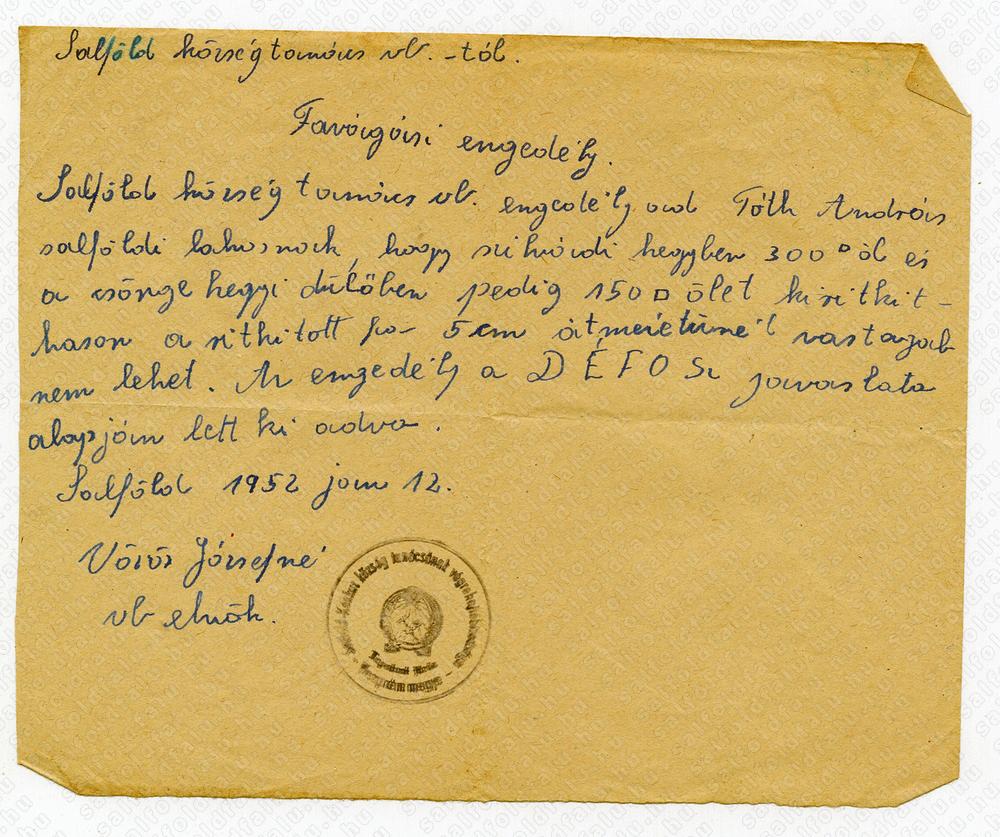 Salföld község tanács vb. -tól.
Favágási engedély.
Salföld község tanács vb. engedélyt ad Tóth András
salföldi lakosnak, hogy hegyben 300 □ öl és
a csönge hegyi dülőben pedig 150 □ ölet kiritkit-
hason a ritkitott fa- 5cm átmérőtünél vastagab
nem lehet. Az engedély a DÉFOSz javaslata
alapján lett ki adva.
Salföld 1952 jan 12.
Vörös Józsefné
vb elnök.
község tanácsának végrehajtóbizottsága
Veszprém megye